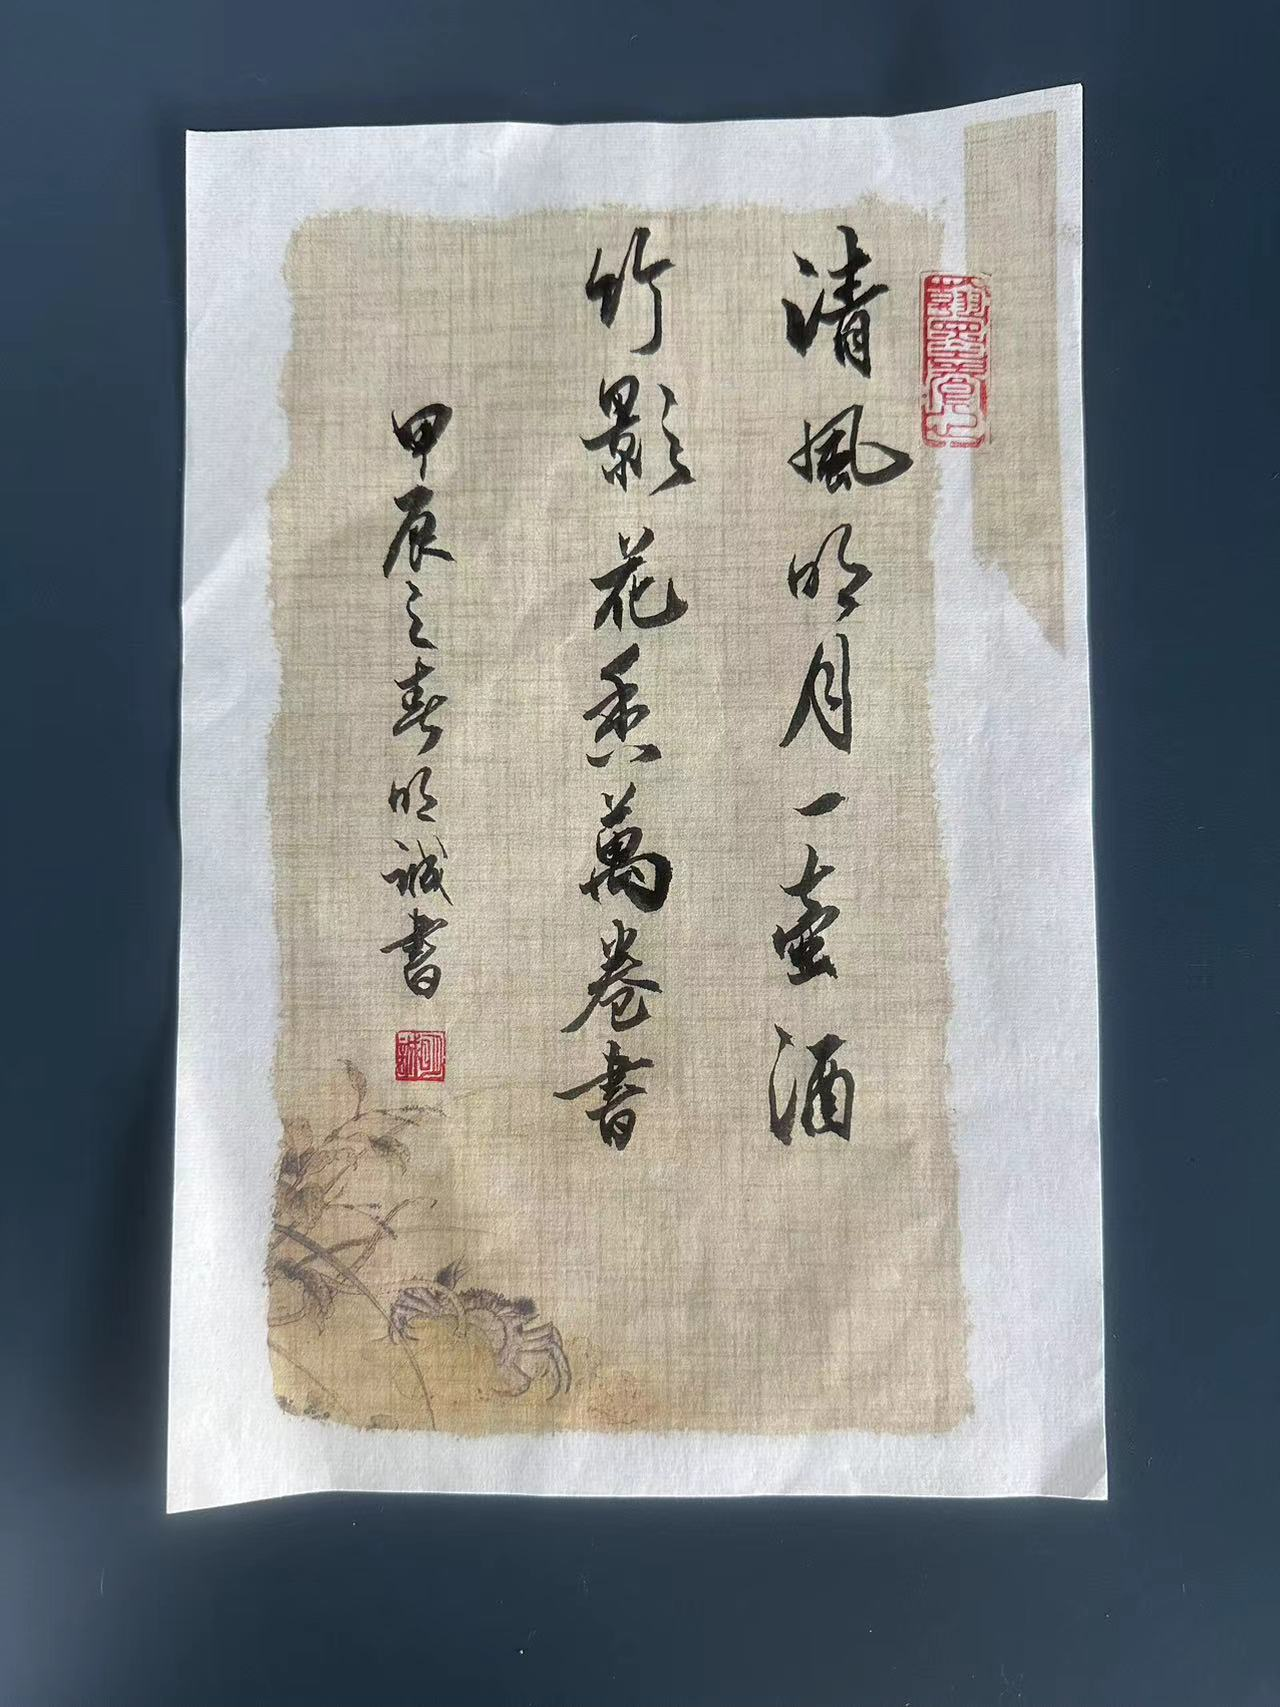 清風明月一壺酒
竹影花香萬卷書
甲辰之春明誠書
明誠